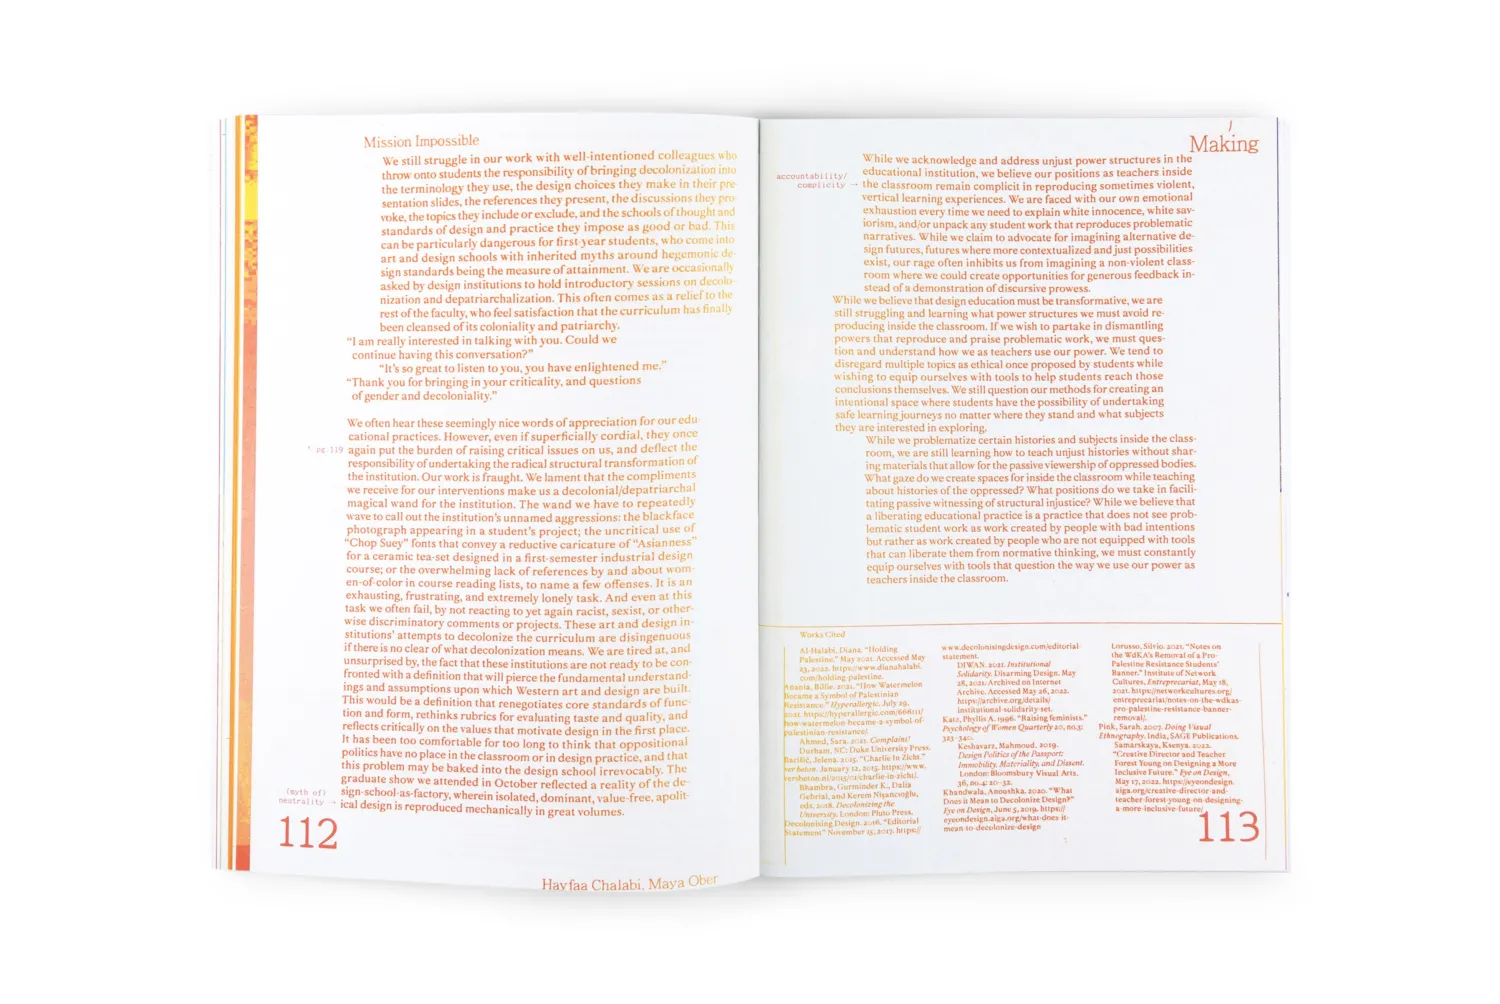 Mission Impossible
We still struggle in our work with well-intentioned colleagues who
throw onto students the responsibility of bringing decolonization into
the terminology they use, the design choices they make in their pre-
sentation slides, the references they present, the discussions they pro-
voke, the topics they include or exclude, and the schools of thought and
standards of design and practice they impose as good or bad. This
can be particularly dangerous for first-year students, who come into
art and design schools with inherited myths around hegemonic de-
sign standards being the measure of attainment. We are occasionally
asked by design institutions to hold introductory sessions on decolo-
nization and depatriarchalization. This often comes as a relief to the
rest of the faculty, who feel satisfaction that the curriculum has finally
been cleansed of its coloniality and patriarchy.
“I am really interested in talking with you. Could we
continue having this conversation?”
“It’s so great to listen to you, you have enlightened me.”
“Thank you for bringing in your criticality, and questions
of gender and decoloniality.”
We often hear these seemingly nice words of appreciation for our edu-
cational practices. However, even if superficially cordial, they once
↖ pg 119
again put the burden of raising critical issues on us, and deflect the
responsibility of undertaking the radical structural transformation of
the institution. Our work is fraught. We lament that the compliments
we receive for our interventions make us a decolonial/depatriarchal
magical wand for the institution. The wand we have to repeatedly
wave to call out the institution’s unnamed aggressions: the blackface
photograph appearing in a student’s project; the uncritical use of
“Chop Suey” fonts that convey a reductive caricature of “Asianness”
for a ceramic tea-set designed in a first-semester industrial design
course; or the overwhelming lack of references by and about wom-
en-of-color in course reading lists, to name a few offenses. It is an
exhausting, frustrating, and extremely lonely task. And even at this
task we often fail, by not reacting to yet again racist, sexist, or other-
wise discriminatory comments or projects. These art and design in-
stitutions’ attempts to decolonize the curriculum are disingenuous
if there is no clear of what decolonization means. We are tired at, and
unsurprised by, the fact that these institutions are not ready to be con-
fronted with a definition that will pierce the fundamental understand-
ings and assumptions upon which Western art and design are built.
This would be a definition that renegotiates core standards of func-
tion and form, rethinks rubrics for evaluating taste and quality, and
reflects critically on the values that motivate design in the first place.
It has been too comfortable for too long to think that oppositional
politics have no place in the classroom or in design practice, and that
this problem may be baked into the design school irrevocably. The
graduate show we attended in October reflected a reality of the de-
(myth of)
neutrality →
sign-school-as-factory, wherein isolated, dominant, value-free, apolit-
ical design is reproduced mechanically in great volumes.
112
Hayfaa Chalabi, Maya Ober
Making
accountability/
complicity →
While we acknowledge and address unjust power structures in the
educational institution, we believe our positions as teachers inside
the classroom remain complicit in reproducing sometimes violent,
vertical learning experiences. We are faced with our own emotional
exhaustion every time we need to explain white innocence, white sav-
iorism, and/or unpack any student work that reproduces problematic
narratives. While we claim to advocate for imagining alternative de-
sign futures, futures where more contextualized and just possibilities
exist, our rage often inhibits us from imagining a non-violent class-
room where we could create opportunities for generous feedback in-
stead of a demonstration of discursive prowess.
While we believe that design education must be transformative, we are
still struggling and learning what power structures we must avoid re-
producing inside the classroom. If we wish to partake in dismantling
powers that reproduce and praise problematic work, we must ques-
tion and understand how we as teachers use our power. We tend to
disregard multiple topics as ethical once proposed by students while
wishing to equip ourselves with tools to help students reach those
conclusions themselves. We still question our methods for creating an
intentional space where students have the possibility of undertaking
safe learning journeys no matter where they stand and what subjects
they are interested in exploring.
While we problematize certain histories and subjects inside the class-
room, we are still learning how to teach unjust histories without shar-
ing materials that allow for the passive viewership of oppressed bodies.
What gaze do we create spaces for inside the classroom while teaching
about histories of the oppressed? What positions do we take in facili-
tating passive witnessing of structural injustice? While we believe that
a liberating educational practice is a practice that does not see prob-
lematic student work as work created by people with bad intentions
but rather as work created by people who are not equipped with tools
that can liberate them from normative thinking, we must constantly
equip ourselves with tools that question the way we use our power as
teachers inside the classroom.
Works Cited
Al-Halabi, Diana. “Holding
Palestine.” May 2021. Accessed May
23, 2022. https://www.dianahalabi.
com/holding-palestine.
Anania, Billie. 2021. “How Watermelon
Became a Symbol of Palestinian
Resistance.” Hyperallergic. July 29,
2021. https://hyperallergic.com/666111/
how-watermelon-became-a-symbol-of-
palestinian-resistance/
Ahmed, Sara. 2021. Complaint!
Durham, NC: Duke University Press.
Barišić, Jelena. 2015. “Charlie In Zicht.”
ver beton. January 12, 2015. https://www.
versbeton.nl/2015/01/charlie-in-zicht/.
Bhambra, Gurminder K., Dalia
Gebrial, and Kerem Nişancıoğlu,
eds. 2018. Decolonizing the
University. London: Pluto Press.
Decolonising Design. 2016. “Editorial
Statement” November 15, 2017. https://
www.decolonisingdesign.com/editorial-
statement.
DIWAN. 2021. Institutional
Solidarity. Disarming Design. May
28, 2021. Archived on Internet
Archive. Accessed May 26, 2022.
https://archive.org/details/
institutional-solidarity-set.
Katz, Phyllis A. 1996. “Raising feminists.”
Psychology of Women Quarterly 20, no.3:
323-340.
Keshavarz, Mahmoud. 2019.
Design Politics of the Passport:
Immobility, Materiality, and Dissent.
London: Bloomsbury Visual Arts.
36, no.4: 20–32.
Khandwala, Anoushka. 2020. “What
Does it Mean to Decolonize Design?”
Eye on Design, June 5, 2019. https://
eyeondesign.aiga.org/what-does-it-
mean-to-decolonize-design
Lorusso, Silvio. 2021. “Notes on
the WdKA’s Removal of a Pro-
Palestine Resistance Students’
Banner.” Institute of Network
Cultures, Entreprecariat, May 18,
2021. https://networkcultures.org/
entreprecariat/notes-on-the-wdkas-
pro-palestine-resistance-banner-
removal/.
Pink, Sarah. 2007. Doing Visual
Ethnography. India, SAGE Publications.
Samarskaya, Ksenya. 2022.
“Creative Director and Teacher
Forest Young on Designing a More
Inclusive Future.” Eye on Design,
May 17, 2022. https://eyeondesign.
aiga.org/creative-director-and-
teacher-forest-young-on-designing-
a-more-inclusive-future/
113